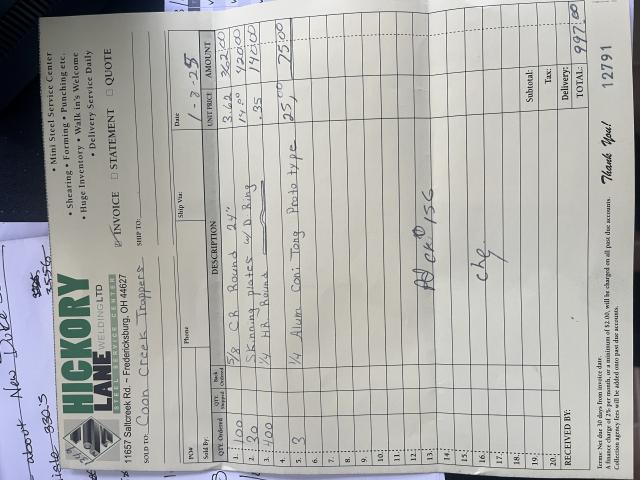 HICKORY
LANE WELDING LTD
STEEL SERVICE CENTER
11657 Saltcreek Rd. ~ Fredericksburg, OH 44627
• Mini Steel Service Center
• Shearing • Forming • Punching etc.
• Huge Inventory • Walk in's Welcome
• Delivery Service Daily
☑ INVOICE ☐ STATEMENT ☐ QUOTE
SOLD TO: Coon Creek Trappers
SHIP TO:
PO# Phone Ship Via: Date
Sold By: 1-3-25
QTY. Ordered QTY. Shipped Back Ordered DESCRIPTION UNIT PRICE AMOUNT
1. 100 5/8 CR Round 24" 3.62 362.00
2. 30 Skinning plates w/ D Ring 14.00 420.00
3. 400 1/4 HR Round .35 140.00
4.
5. 3 1/4 Alum Coni Tong Prototype 25.00 75.00
6.
7.
8.
9.
10.
11.
12.
13. Pd ck# 156
14.
15.
16. chg
17.
18.
19. Subtotal:
20. Tax:
Delivery:
RECEIVED BY: TOTAL: 997.00
Terms: Net due 30 days from invoice date.
A finance charge of 2% per month, or a minimum of $2.00, will be charged on all past due accounts.
Collection agency fees will be added onto past due accounts.
Thank You!
12791
about New Duke
3356
330.5